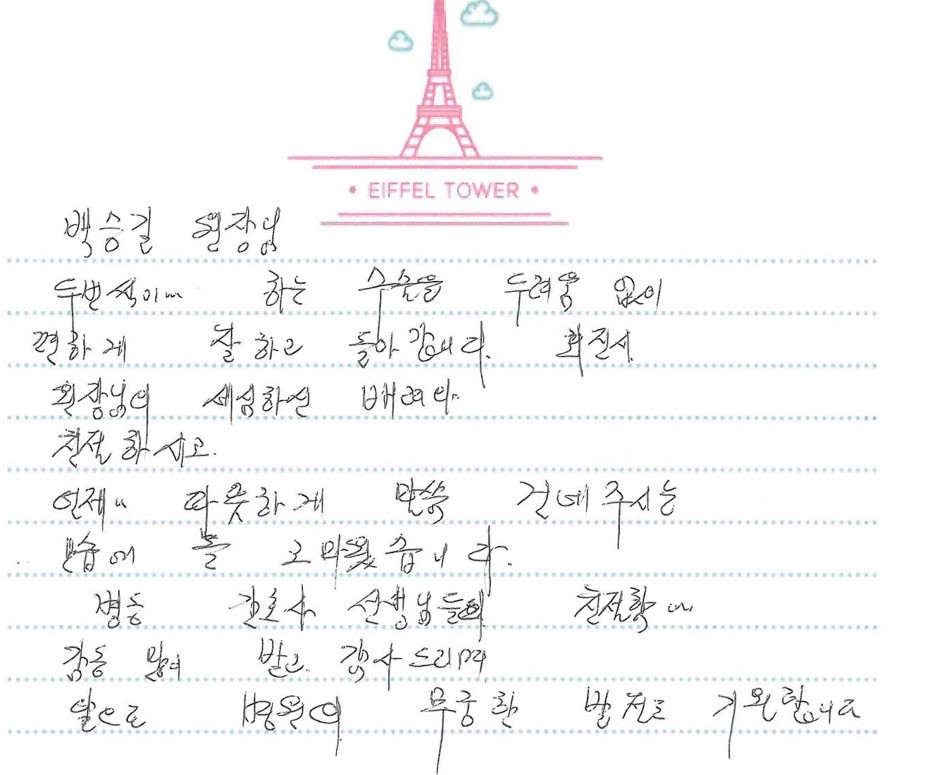 EIFFEL TOWER
백승길 원장님
두번씩이나 하는 수술을 두려움 없이
편하게 잘 하고 돌아갑니다. 회진시
원장님의 세심하신 배려와
친절하시고.
언제나 따뜻하게 말씀 건네주시는
모습에 늘 고마웠습니다.
병동 간호사 선생님들의 친절함에
감동 많이 받고 감사드리며
앞으로 병원의 무궁한 발전도 기원합니다